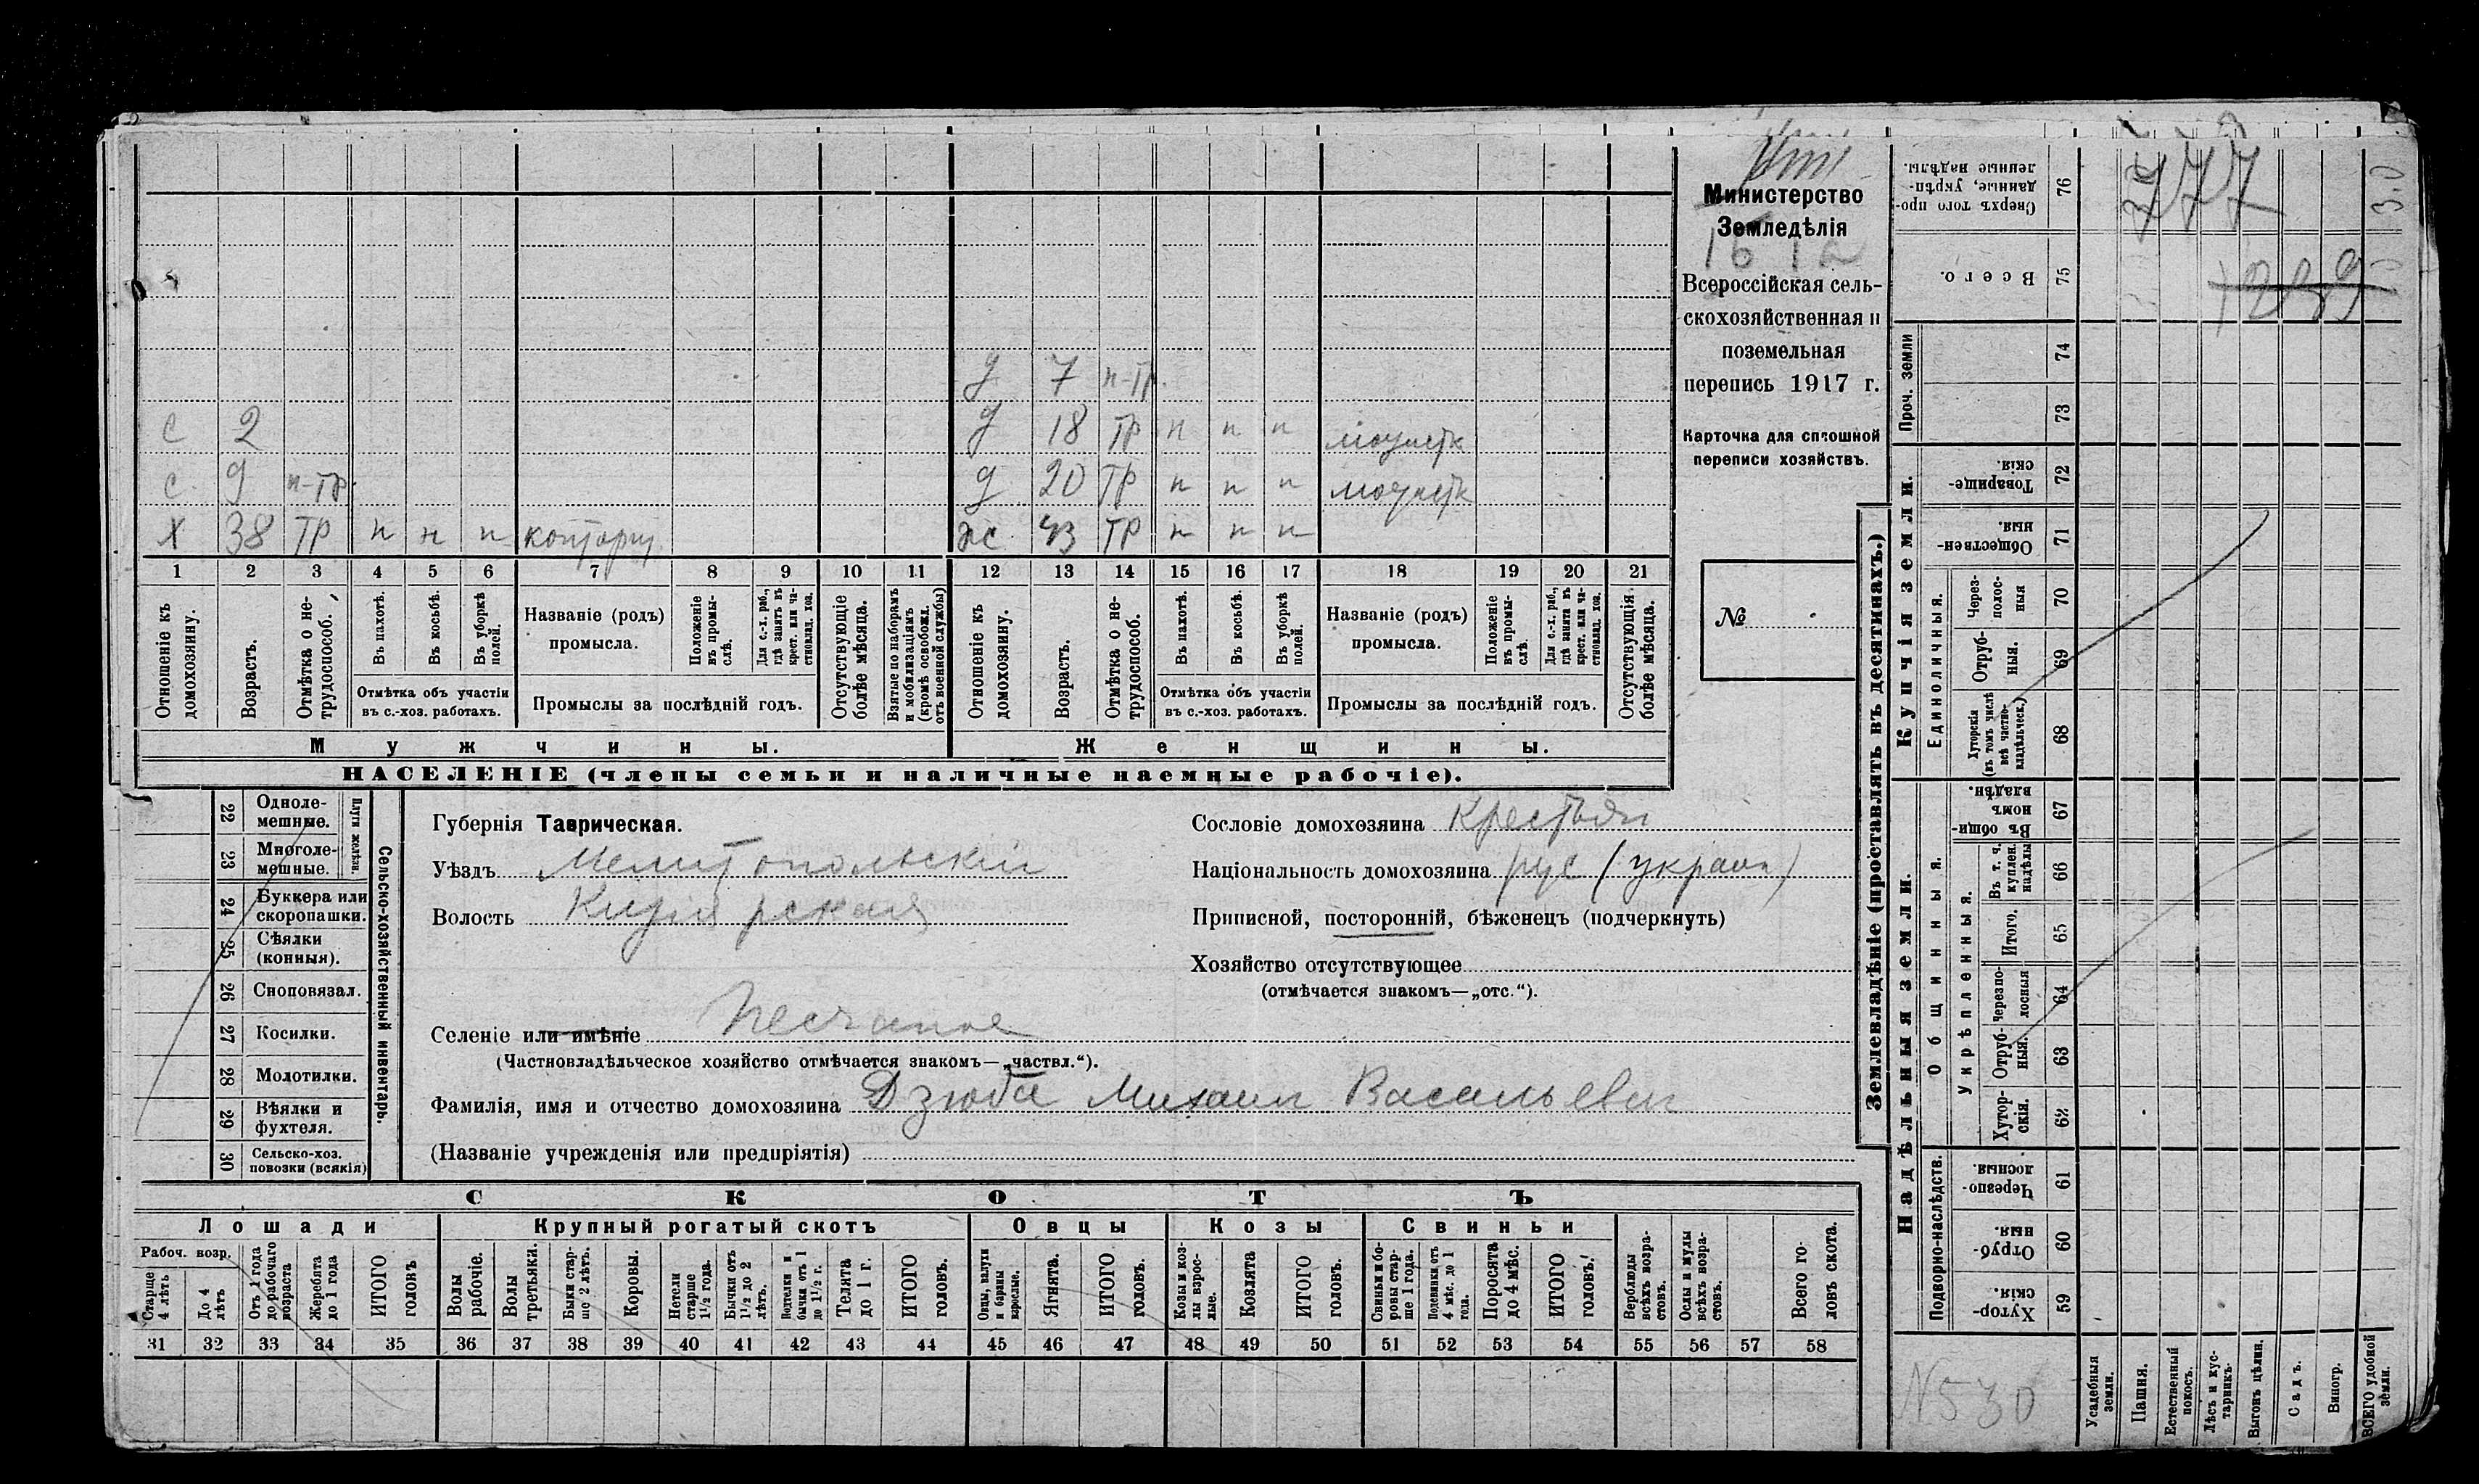 Министерство
Земледѣлія
Всероссійская сель-
скохозяйственная и
поземельная
перепись 1917 г.
Карточка для сплошной
переписи хозяйствъ.
№
д 7 н-тр.
с 2 д 18 тр п п п
с. 9 н-тр. д 20 тр п п п
х 38 тр п п п жс 43 тр п п п
1 2 3 4 5 6 7 8 9 10 11 12 13 14 15 16 17 18 19 20 21
Отношеніе къ домохозяину.
Возрастъ.
Отмѣтка о не-трудоспособ.
Въ пахотѣ.
Въ косьбѣ.
Въ уборкѣ полей.
Отмѣтка объ участіи
въ с.-хоз. работахъ.
Названіе (родъ)
промысла.
Положеніе въ промы-слѣ.
Для с.-х. раб., гдѣ занятъ въ крест. или ча-стновлад. хоз.
Промыслы за послѣдній годъ.
Отсутствующіе болѣе мѣсяца.
Взятые по наборамъ и мобилизаціямъ (кромѣ освобожд. отъ военной службы)
Отношеніе къ домохозяину.
Возрастъ.
Отмѣтка о не-трудоспособ.
Въ пахотѣ.
Въ косьбѣ.
Въ уборкѣ полей.
Отмѣтка объ участіи
въ с.-хоз. работахъ.
Названіе (родъ)
промысла.
Положеніе въ промы-слѣ.
Для с.-х. раб., гдѣ занята въ крест. или ча-стновлад. хоз.
Промыслы за послѣдній годъ.
Отсутствующія болѣе мѣсяца.
Мужчины.
Женщины.
НАСЕЛЕНІЕ (члены семьи и наличные наемные рабочіе).
22 Одноле-мешные.
23 Многоле-мешные.
Плуги желѣзн.
24 Буккера или скоропашки.
25 Сѣялки (конныя).
26 Сноповязал.
27 Косилки.
28 Молотилки.
29 Вѣялки и фухтеля.
30 Сельско-хоз. повозки (всякія)
Сельско-хозяйственный инвентарь.
Губернія Таврическая.
Уѣздъ Мелитопольскій
Волость
Сословіе домохозяина Крестьян
Національность домохозяина рус (украин)
Приписной, посторонній, бѣженецъ (подчеркнуть)
Хозяйство отсутствующее
(отмѣчается знакомъ—„отс.“).
Селеніе или имѣніе Песчаное
(Частновладѣльческое хозяйство отмѣчается знакомъ—„частвл.“).
Фамилія, имя и отчество домохозяина Дзюба Михаил Васильевич
(Названіе учрежденія или предпріятія)
СКОТЪ
Лошади
Крупный рогатый скотъ
Овцы
Козы
Свиньи
Рабоч. возр.
Старше 4 лѣтъ
До 4 лѣтъ
Отъ 1 года до рабочаго возраста
Жеребята до 1 года
ИТОГО головъ
Волы рабочіе.
Волы третьяки.
Быки стар-ше 2 лѣтъ.
Коровы.
Нетели старше 1½ года.
Бычки отъ 1½ до 2 лѣтъ.
Подтелки и бычки отъ 1 до 1½ г.
Телята до 1 г.
ИТОГО головъ.
Овцы, валухи и бараны взрослые.
Ягнята.
ИТОГО головъ.
Козы и коз-лы взрос-лые.
Козлята
ИТОГО головъ.
Свиньи и бо-ровы стар-ше 1 года.
Подсвинки отъ 4 мѣс. до 1 года.
Поросята до 4 мѣс.
ИТОГО головъ.
Верблюды всѣхъ возра-стовъ.
Ослы и мулы всѣхъ возра-стовъ.
Всего го-ловъ скота.
31 32 33 34 35 36 37 38 39 40 41 42 43 44 45 46 47 48 49 50 51 52 53 54 55 56 57 58
Землевладѣніе (проставлять въ десятинахъ.)
Сверхъ того про-данные, укрѣп-ленные надѣлы. 76
777
3.0
Всего. 75
Проч. земли
74
73
Купчія земли.
Товарище-скія. 72
Обществен-ныя. 71
Единоличныя.
Через-полос-ныя 70
Отруб-ныя. 69
Хуторскія (въ томъ числѣ всѣ частно-владѣльческ.) 68
Надѣльныя земли.
Общинныя.
Въ общи-номъ владѣн. 67
Укрѣпленныя.
Въ т. ч. куплен. надѣлы 66
Итого. 65
Черезпо-лосныя 64
Отруб-ныя. 63
Хутор-скія. 62
Подворно-наслѣдств.
Черезпо-лосныя. 61
Отруб-ныя. 60
Хутор-скія. 59
N530
Усадебныя земли.
Пашня.
Естественный покосъ.
Лѣсъ и кус-тарникъ.
Выгонъ цѣлин.
Садъ.
Виногр.
ВСЕГО удобной земли.